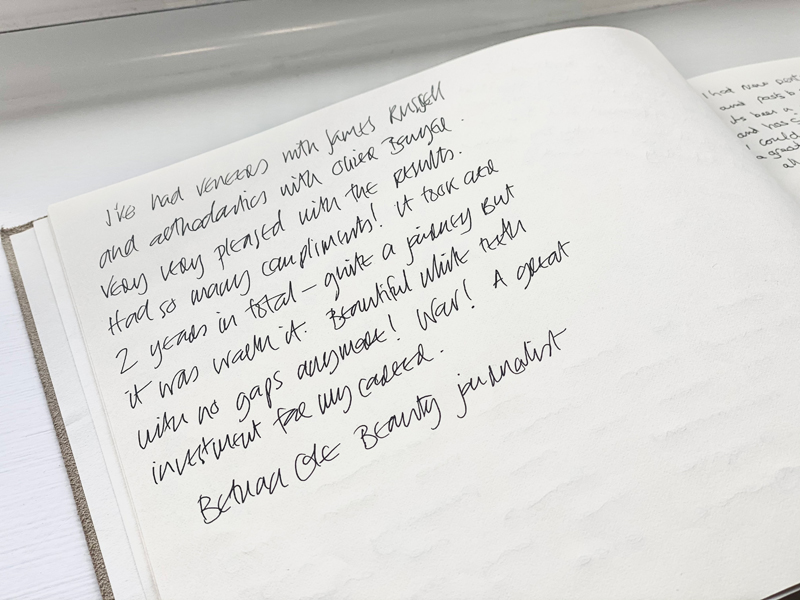 I've had veneers with James Russell
and orthodontics with Oliver Bowyer.
very very pleased with the results.
Had so many compliments! It took over
2 years in total – quite a journey but
it was worth it. Beautiful white teeth
with no gaps anymore! Wow! A great
investment for my career.
Cole Beauty journalist
that
and
its been a
and has
I could
a great
all